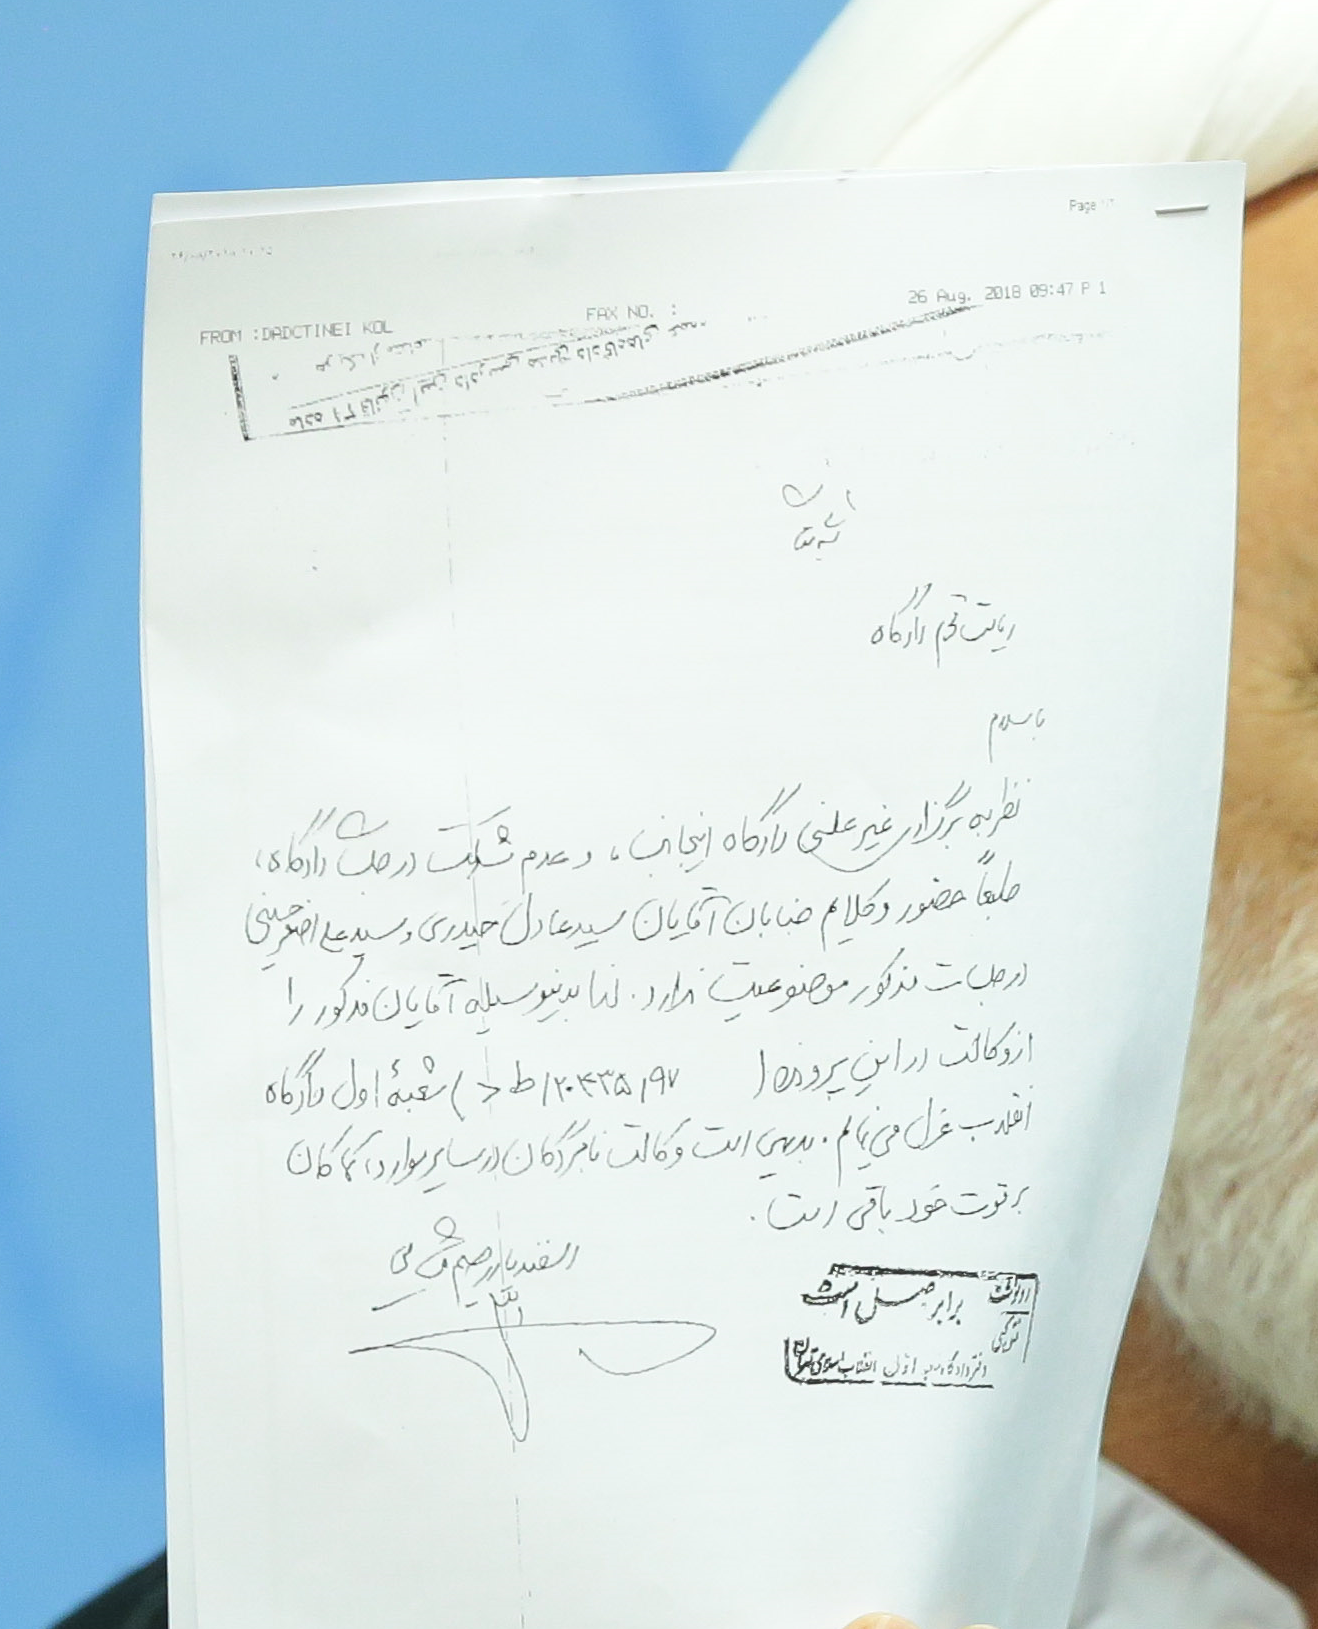 Page 1/1
26 Aug. 2018 09:47 P 1
FROM :DADCTINEI KOL FAX NO. :
ماده ۳۱ قانون آیین دادرسی مدنی دادگاههای
هر یک از
ریاست محترم دادگاه
با سلام
نظر به برگزاری غیر علنی دادگاه اینجانب، و عدم شرکت در جلسات دادگاه،
طبعاً حضور وکلایم جنابان آقایان سید عادل حیدری و سید علی اصغر حسینی
در جلسات مذکور موضوعیت ندارد. لذا بدینوسیله آقایان مذکور را
از وکالت در این پرونده ( ۲۰۴۳۵/۹۷/ط د ) شعبهٔ اول دادگاه
انقلاب عزل می‌نمایم. بدیهی است وکالت نامبردگان در سایر موارد، کماکان
بر قوت خود باقی است.
اسفندیار رحیم مشایی
رونوشت برابر اصل است
دفتر دادگاه شعبه اول انقلاب اسلامی تهران